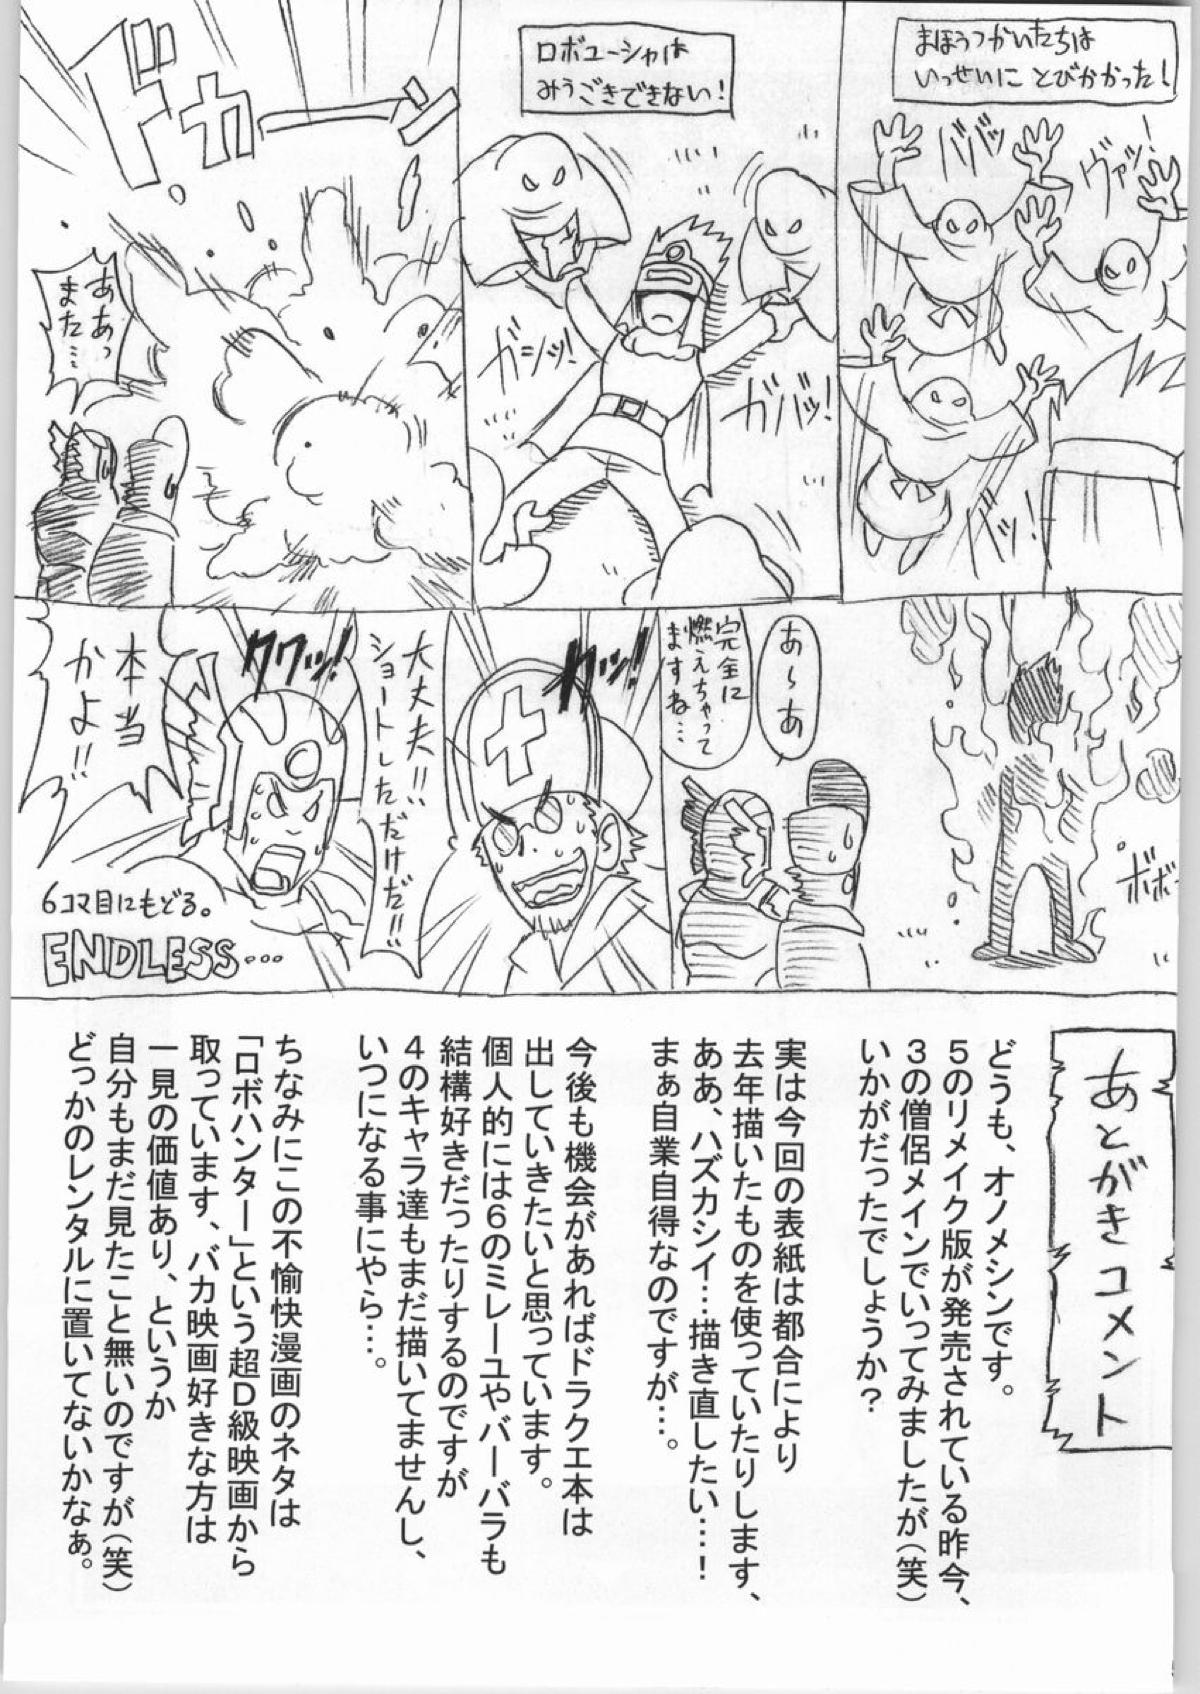 まほうつかいたちは
いっせいに とびかかった!
ババッ
ヴァッ!
バッ!
ロボユーシャは
みうごきできない!
ガシッ!
ガバッ!
ドカーン
ああっ
また…
ボボ
あ〜あ
完全に
燃えちゃって
ますね…
クワッ!
大丈夫!!
ショートしただけだ!!
クワッ!
本当
かよ!!
6コマ目にもどる。
ENDLESS…
あとがきコメント
どうも、オノメシンです。
5のリメイク版が発売されている昨今、
3の僧侶メインでいってみましたが(笑)
いかがだったでしょうか?
実は今回の表紙は都合により
去年描いたものを使っていたりします、
ああ、ハズカシイ…描き直したい…!
まぁ自業自得なのですが…。
今後も機会があればドラクエ本は
出していきたいと思っています。
個人的には6のミレーユやバーバラも
結構好きだったりするのですが
4のキャラ達もまだ描いてませんし、
いつになる事にやら…。
ちなみにこの不愉快漫画のネタは
「ロボハンター」という超D級映画から
取っています、バカ映画好きな方は
一見の価値あり、というか
自分もまだ見たこと無いのですが(笑)
どっかのレンタルに置いてないかなぁ。